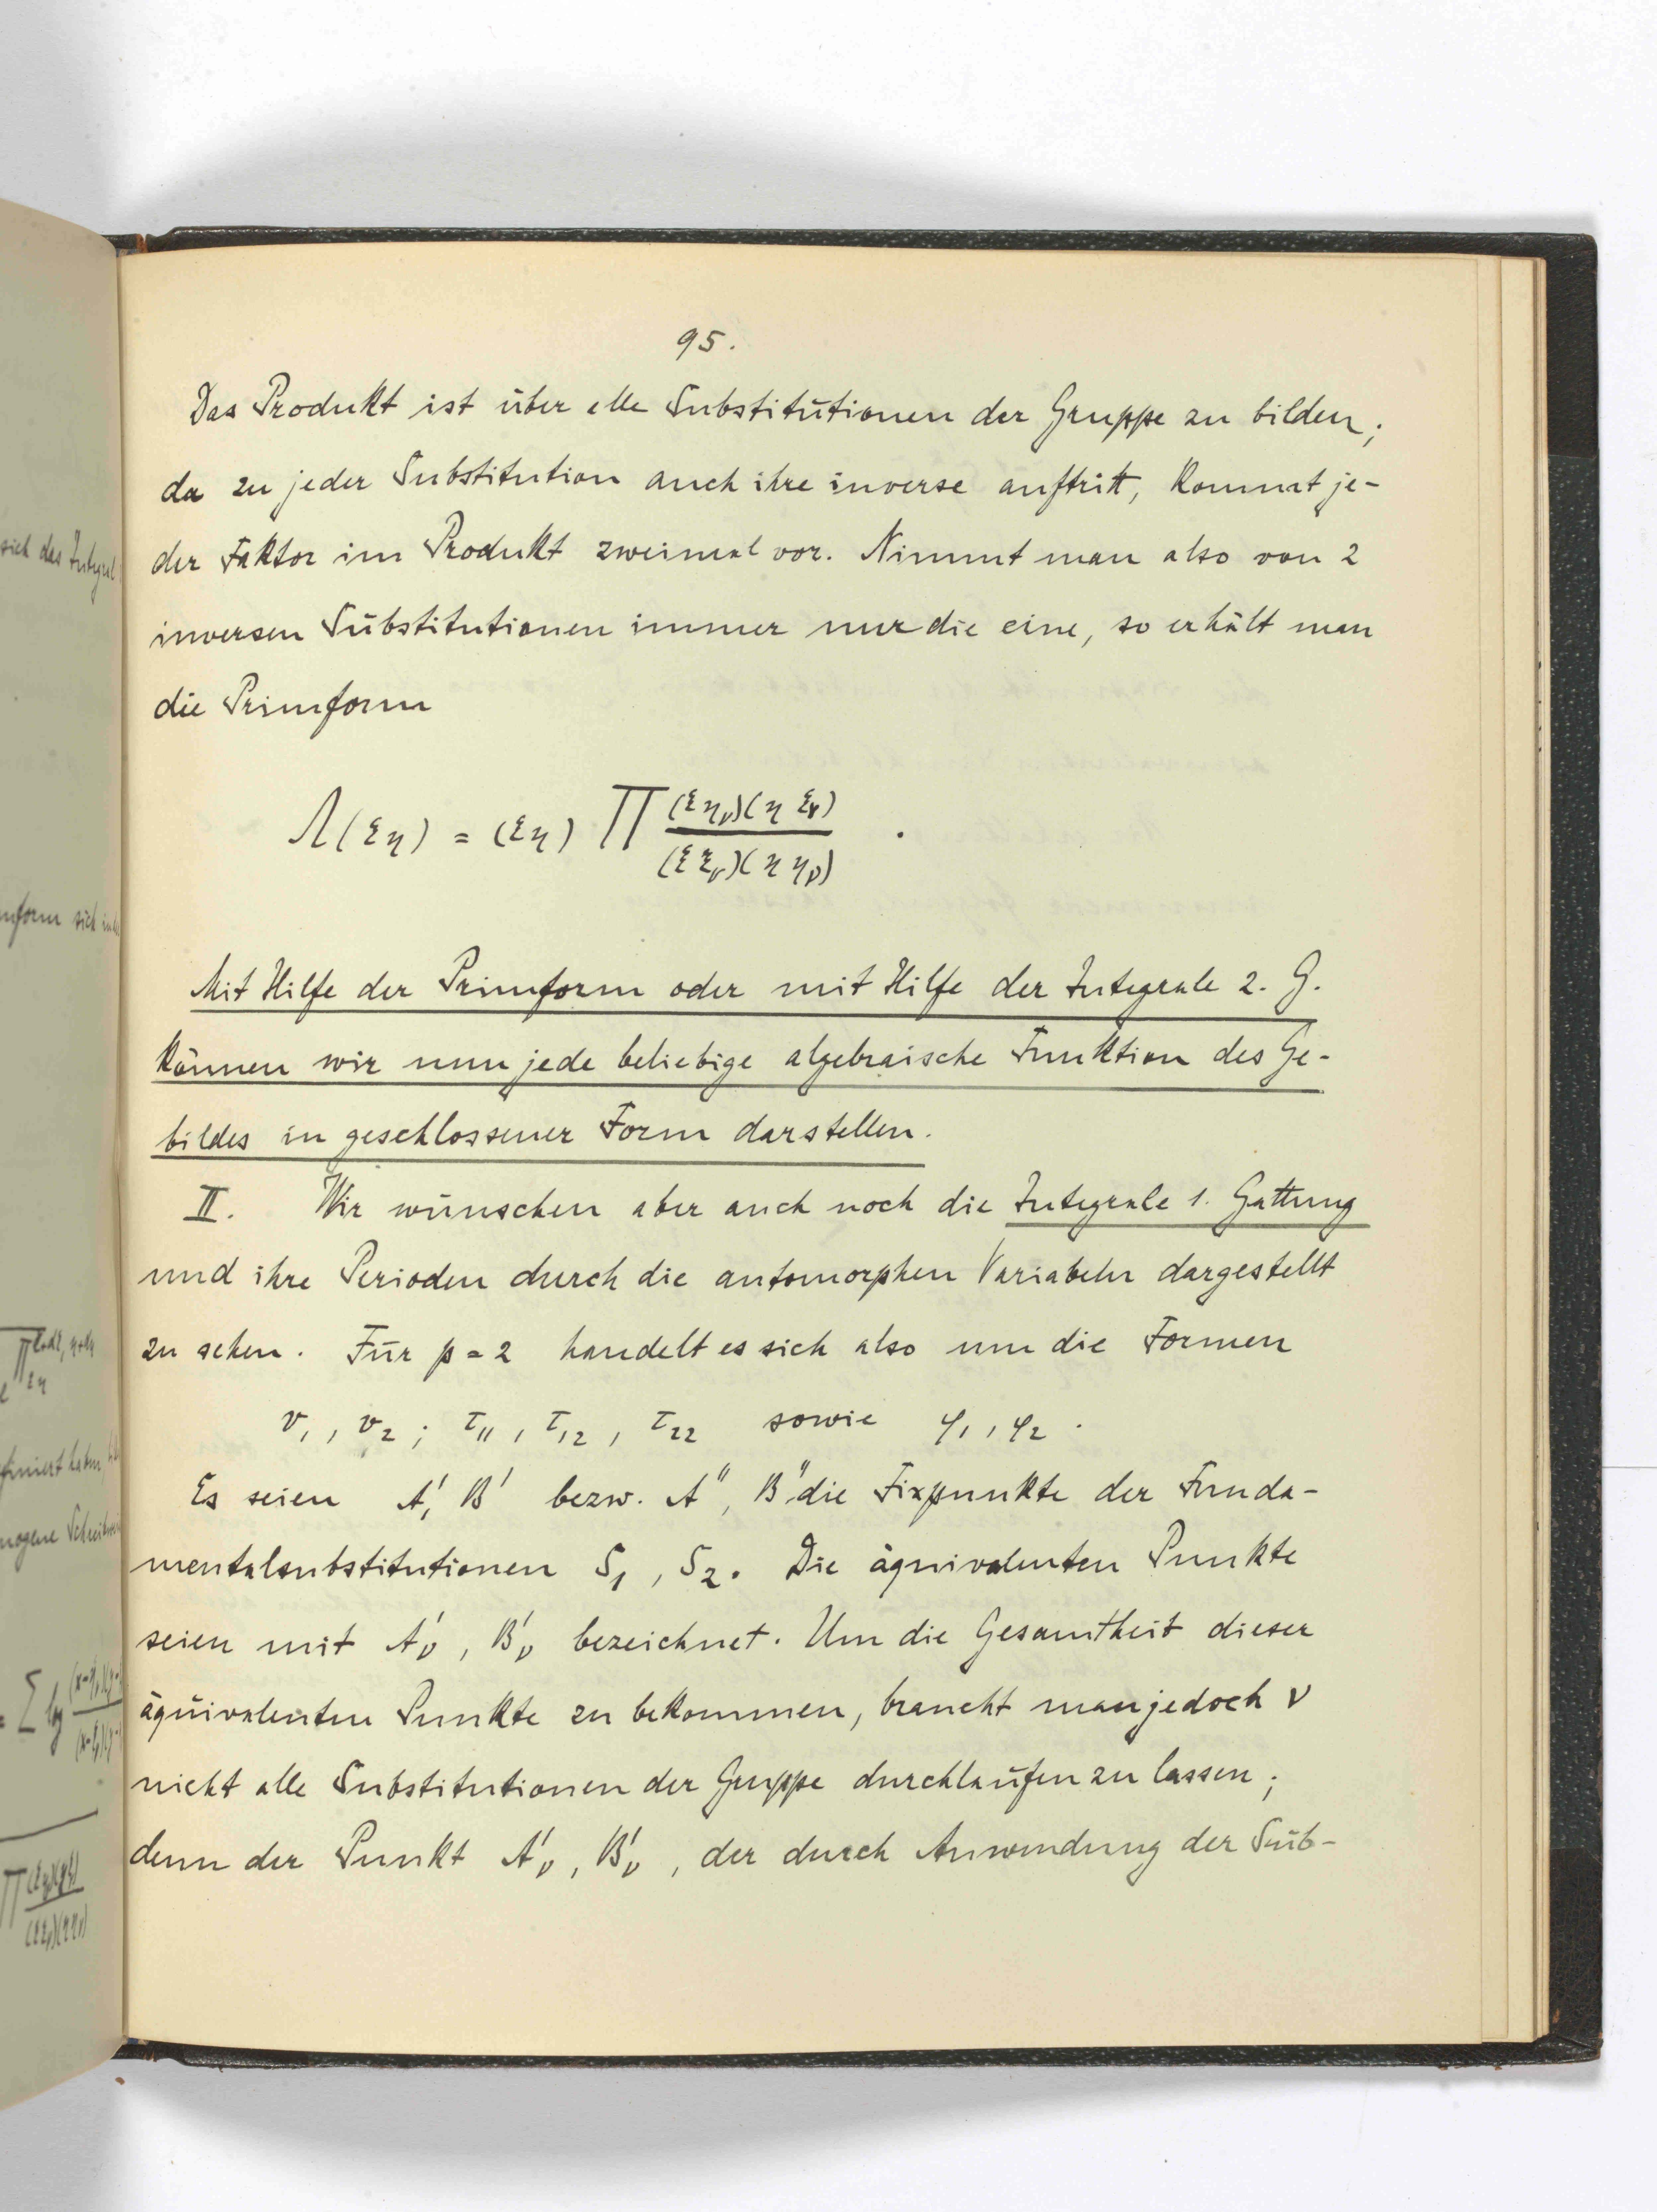 95.
Das Produkt ist über alle Substitutionen der Gruppe zu bilden;
da zu jeder Substitution auch ihre inverse auftritt, kommt je-
der Faktor im Produkt zweimal vor. Nimmt man also von 2
inversen Substitutionen immer nur die eine, so erhält man
die Primform
Λ(ξη) = (ξη) ∏ (ξη_ν)(η ξ_ν) / (ξ ξ_ν)(η η_ν) .
Mit Hilfe der Primform oder mit Hilfe der Integrale 2. G.
können wir nun jede beliebige algebraische Funktion des Ge-
bildes in geschlossener Form darstellen.
II. Wir wünschen aber auch noch die Integrale 1. Gattung
und ihre Perioden durch die automorphen Variabeln dargestellt
zu sehen. Für p = 2 handelt es sich also um die Formen
v₁, v₂; τ₁₁, τ₁₂, τ₂₂ sowie φ₁, φ₂.
Es seien A', B' bezw. A'', B'' die Fixpunkte der Funda-
mentalsubstitutionen S₁, S₂. Die äquivalenten Punkte
seien mit A'_ν, B'_ν bezeichnet. Um die Gesamtheit dieser
äquivalenten Punkte zu bekommen, braucht man jedoch ν
nicht alle Substitutionen der Gruppe durchlaufen zu lassen;
denn der Punkt A'_ν, B'_ν, der durch Anwendung der Sub-
sich das Integral